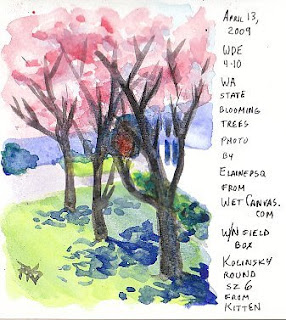 April 13,
2009
WDE
4-10
WA
State
Blooming
Trees
Photo
by
Elainepsq
from
WetCanvas.
com
W/N Field
Box
Kolinsky
Round
Sz 6
from
Kitten